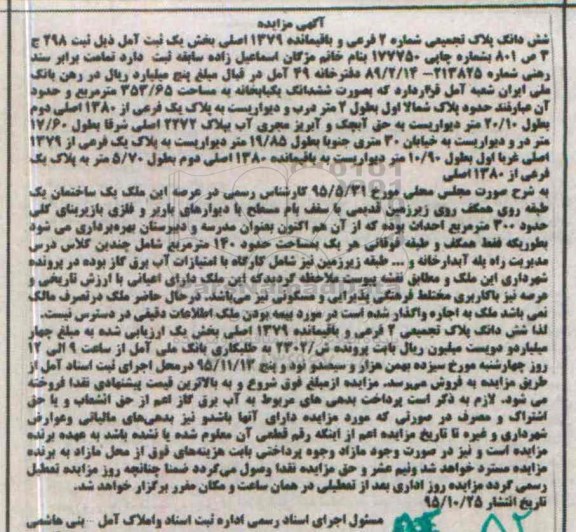 آگهی مزایده
شش دانگ پلاک تجمیعی شماره ۲ فرعی و باقیمانده ۱۳۷۹ اصلی بخش یک ثبت آمل ذیل ثبت ۲۹۸ ج
۳ ص ۸۰۱ بشماره چاپی ۱۷۷۷۵۰ بنام خانم مژگان اسماعیل زاده سابقه ثبت دارد تمامت برابر سند
رهنی شماره ۲۱۳۸۲۵- ۸۹/۲/۱۴ دفترخانه ۴۹ آمل در قبال مبلغ پنج میلیارد ریال در رهن بانک
ملی ایران شعبه آمل قراردارد که بصورت ششدانگ یکبابخانه به مساحت ۳۵۳/۶۵ مترمربع و حدود
آن عبارتند حدود پلاک شمالا اول بطول ۲ متر درب و دیواریست به پلاک یک فرعی از ۱۳۸۰ اصلی دوم
بطول ۲۰/۱۰ متر دیواریست به حق آبچک و آبریز مجری آب بپلاک ۲۲۷۲ اصلی شرقا بطول ۱۷/۶۰
متر در و دیواریست به خیابان ۳۰ متری جنوبا بطول ۱۹/۸۵ متر دیواریست به پلاک یک فرعی از ۱۳۷۹
اصلی غربا اول بطول ۱۰/۹۰ متر دیواریست به باقیمانده ۱۳۸۰ اصلی دوم بطول ۵/۷۰ متر به پلاک یک
فرعی از ۱۳۸۰ اصلی
به شرح صورت مجلس محلی مورخ ۹۵/۵/۳۱ کارشناس رسمی در عرصه این ملک یک ساختمان یک
طبقه روی همکف روی زیرزمین قدیمی با سقف بام مسطح با دیوارهای باربر و فلزی بازیربنای کلی
حدود ۳۰۰ مترمربع احداث بوده که از آن هم اکنون بعنوان مدرسه و دبیرستان بهره‌برداری می شود
بطوریکه فقط همکف و طبقه فوقانی هر یک بمساحت حدود ۱۴۰ مترمربع شامل چندین کلاس درس
مدیریت راه پله آبدارخانه و ... طبقه زیرزمین نیز شامل کارگاه با امتیازات آب برق گاز بوده در پرونده
شهرداری این ملک و مطابق نقشه پیوست ملاحظه گردیدکه این ملک دارای اعیانی با ارزش تاریخی و
عرصه نیز باکاربری مختلط فرهنگی پذیرایی و مسکونی نیز می‌باشد. درحال حاضر ملک درتصرف مالک
نمی باشد ملک به اجاره واگذار شده است در مورد بیمه بودن ملک اطلاعات دقیقی در دسترس نیست.
لذا شش دانگ پلاک تجمیعی ۲ فرعی و باقیمانده ۱۳۷۹ اصلی بخش یک ارزیابی شده به مبلغ چهار
میلیاردو دویست میلیون ریال بابت پرونده ش/۲۳۰۲ به طلبکاری بانک ملی آمل از ساعت ۹ الی ۱۲
روز چهارشنبه مورخ سیزده بهمن هزار و سیصدو نود و پنج ۹۵/۱۱/۱۳ درمحل اجرای ثبت اسناد آمل از
طریق مزایده به فروش می‌رسد. مزایده ازمبلغ فوق شروع و به بالاترین قیمت پیشنهادی نقدا فروخته
می شود. لازم به ذکر است پرداخت بدهی های مربوط به آب برق گاز اعم از حق انشعاب و یا حق
اشتراک و مصرف در صورتی که مورد مزایده دارای آنها باشدو نیز بدهی‌های مالیاتی وعوارض
شهرداری و غیره تا تاریخ مزایده اعم از اینکه رقم قطعی آن معلوم شده یا نشده باشد به عهده برنده
مزایده است و نیز در صورت وجود مازاد وجوه پرداختی بابت هزینه‌های فوق از محل مازاد به برنده
مزایده مسترد خواهد شد ونیم عشر و حق مزایده نقدا وصول می‌گردد ضمنا چنانچه روز مزایده تعطیل
رسمی گردد مزایده روز اداری بعد از تعطیلی در همان ساعت و مکان مقرر برگزار خواهد شد.
تاریخ انتشار ۹۵/۱۰/۲۵
مسئول اجرای اسناد رسمی اداره ثبت اسناد واملاک آمل - بنی هاشمی